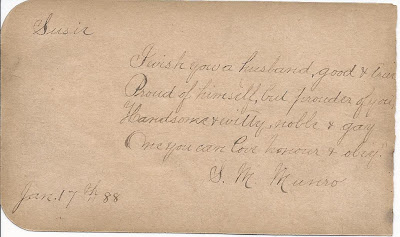 Susie
I wish you a husband, good & true
Proud of himself, but prouder of you
Handsome & witty, noble & gay
One you can love honour & obey.
S. M. Munro
Jan. 17th 88